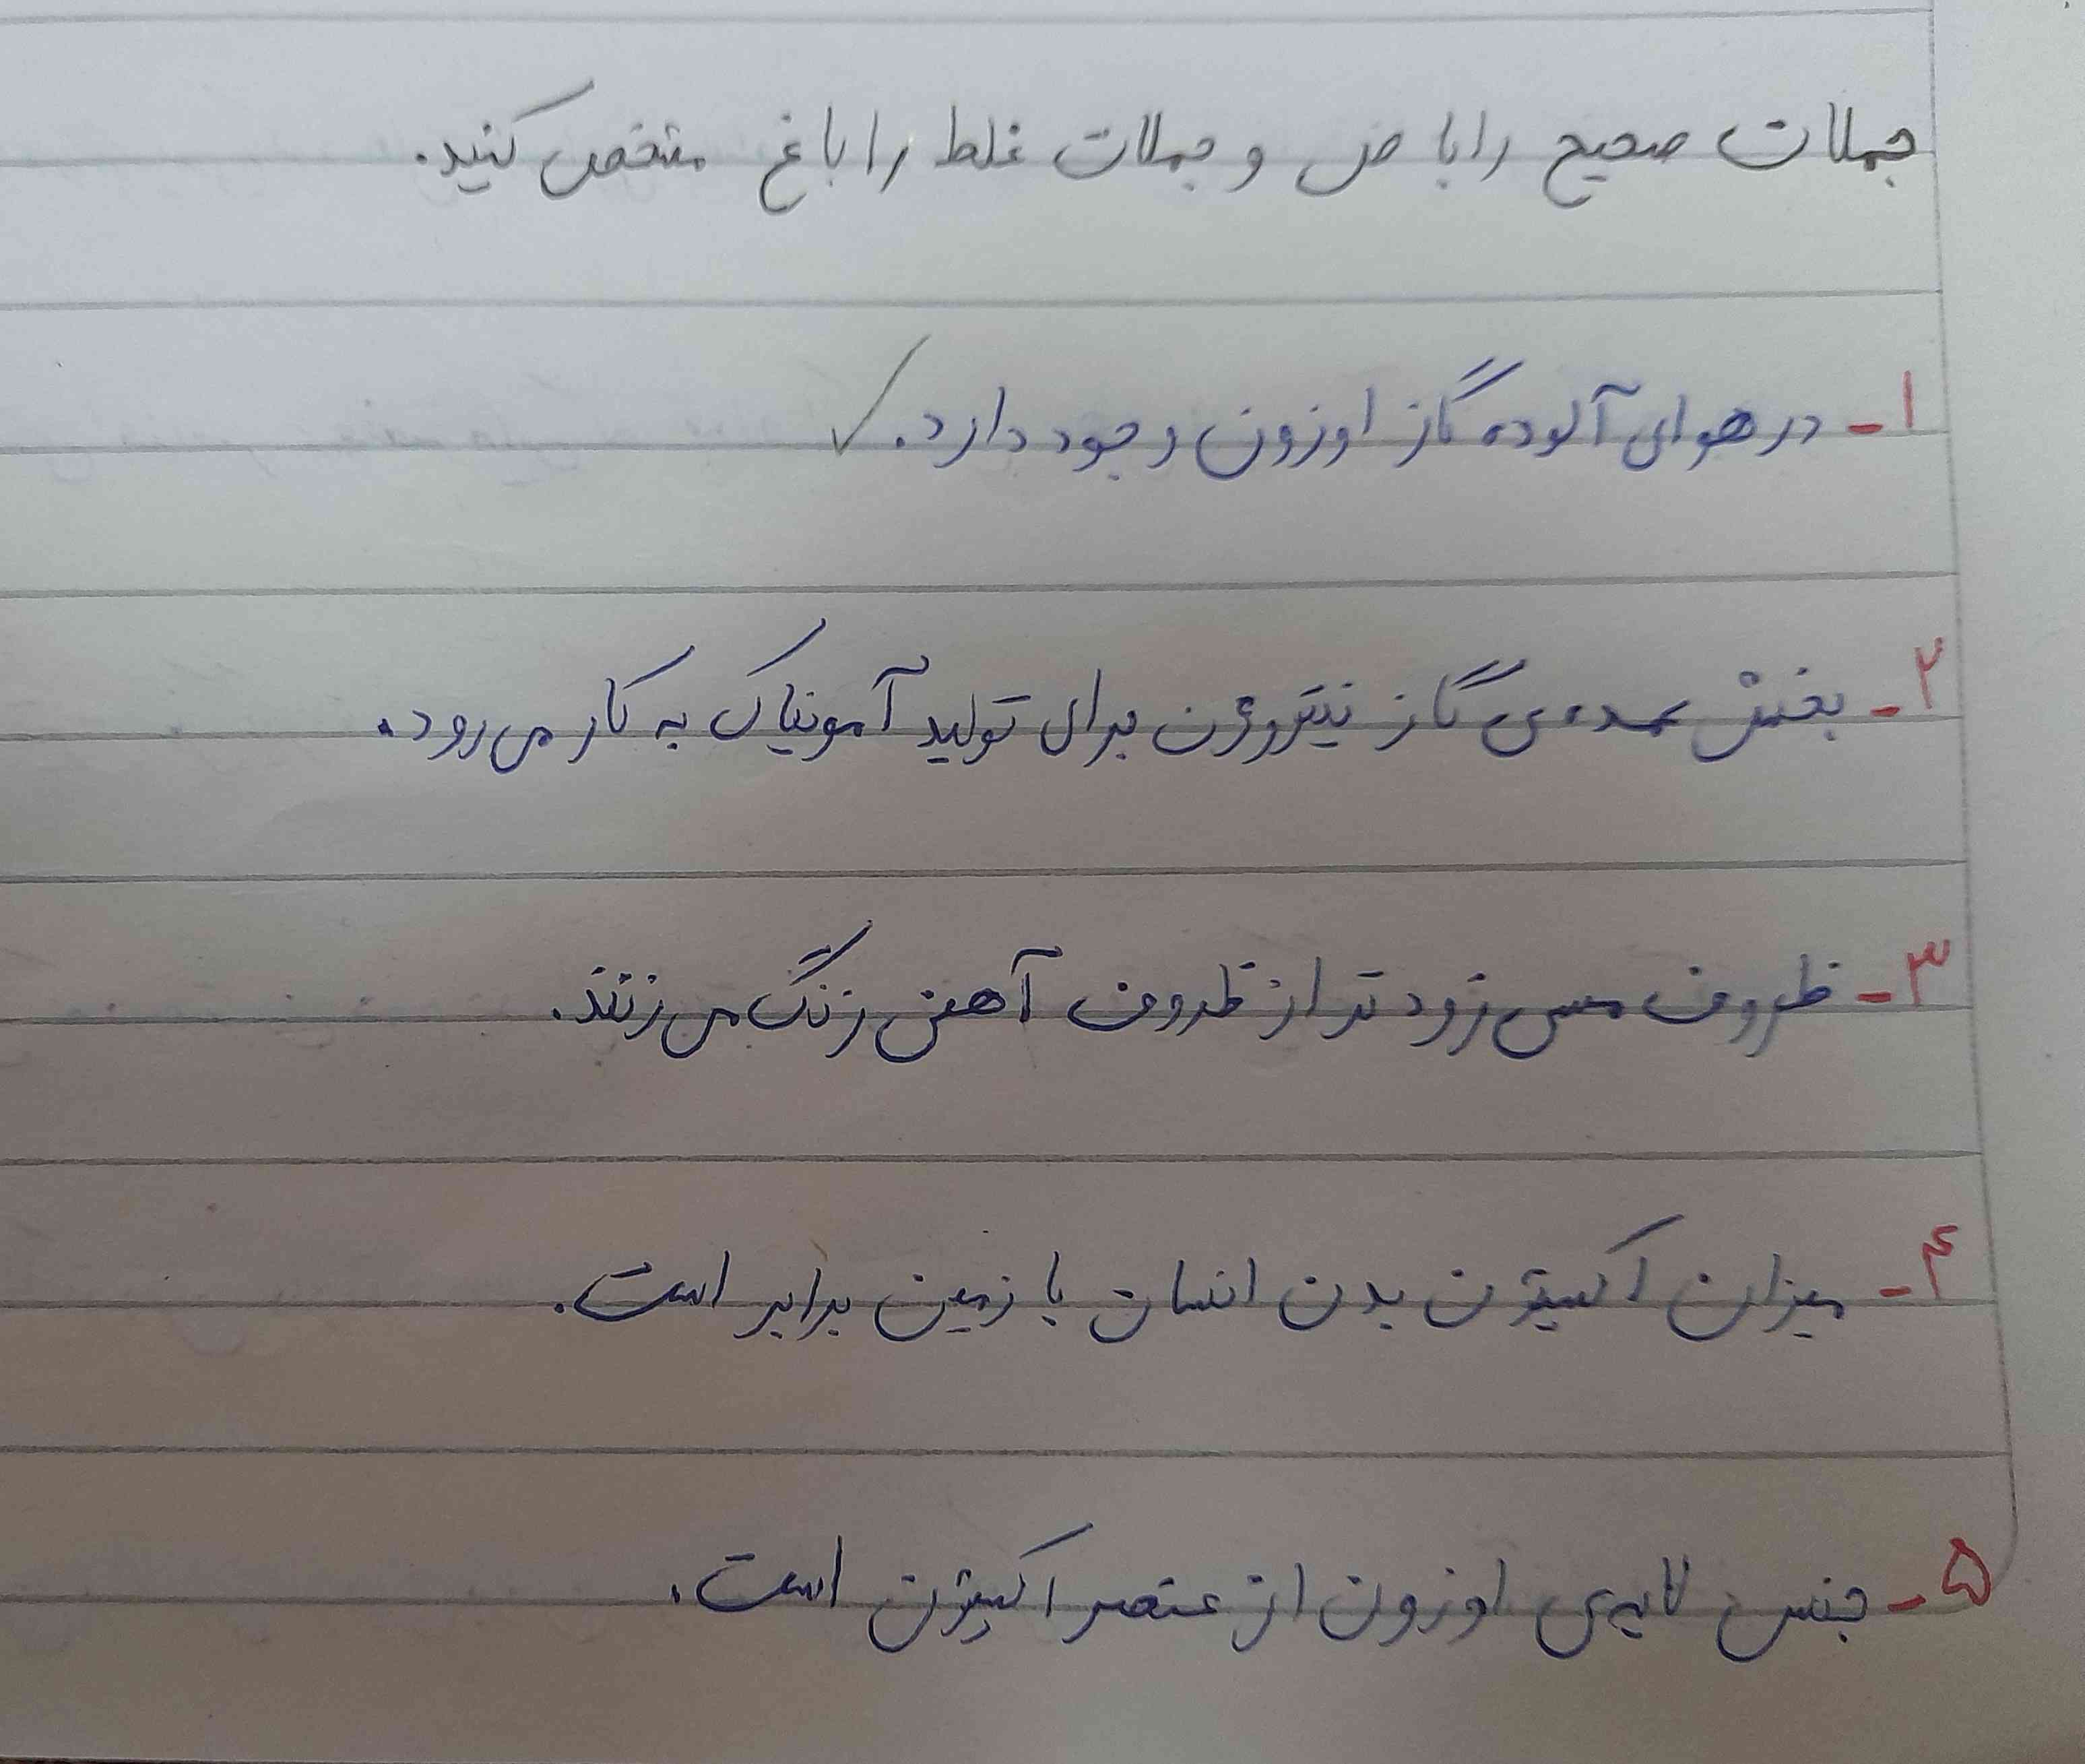 جملات صحیح را با ص و جملات غلط را با غ مشخص کنید.
۱- در هوای آلوده گاز اوزون وجود دارد. ✓
۲- بخش عمده‌ی گاز نیتروژن برای تولید آمونیاک به کار می‌رود.
۳- ظروف مسی زود تر از ظروف آهنی زنگ می‌زنند.
۴- میزان اکسیژن بدن انسان با زمین برابر است.
۵- جنس لایه‌ی اوزون از عنصر اکسیژن است.